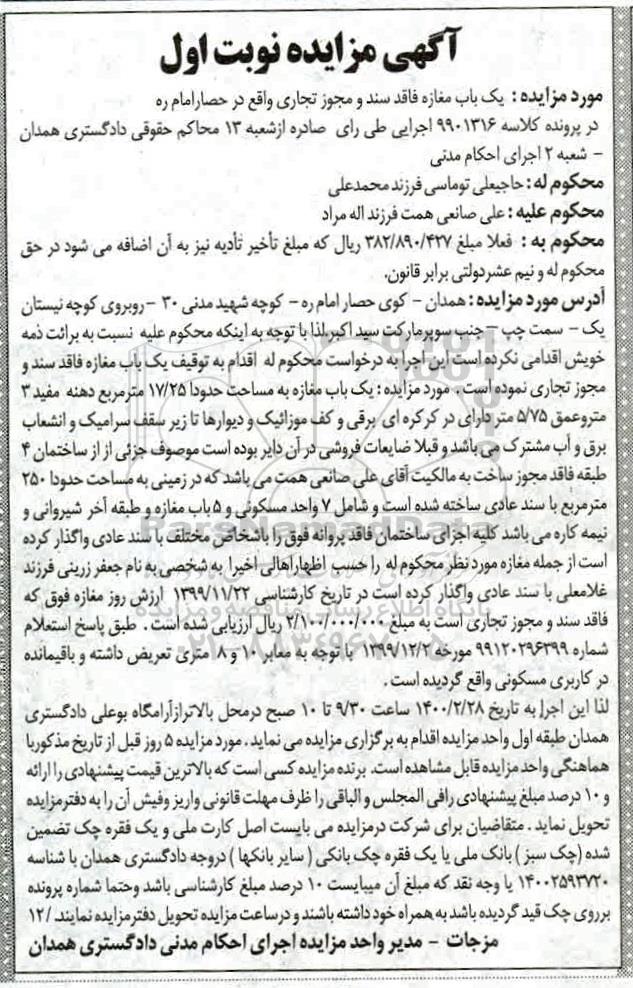 آگهی مزایده نوبت اول
مورد مزایده : یک باب مغازه فاقد سند و مجوز تجاری واقع در حصارامام ره
در پرونده کلاسه ۹۹۰۱۳۱۶ اجرایی طی رای صادره ازشعبه ۱۳ محاکم حقوقی دادگستری همدان
– شعبه ۲ اجرای احکام مدنی
محکوم له : حاجیعلی توماسی فرزند محمدعلی
محکوم علیه : علی صانعی همت فرزند اله مراد
محکوم به : فعلا مبلغ ۳۸۲/۸۹۰/۴۲۷ ریال که مبلغ تأخیر تأدیه نیز به آن اضافه می شود در حق
محکوم له و نیم عشردولتی برابر قانون.
آدرس مورد مزایده : همدان – کوی حصار امام ره – کوچه شهید مدنی ۳۰ – روبروی کوچه نیستان
یک – سمت چپ – جنب سوپرمارکت سید اکبر.لذا با توجه به اینکه محکوم علیه نسبت به برائت ذمه
خویش اقدامی نکرده است این اجرا به درخواست محکوم له اقدام به توقیف یک باب مغازه فاقد سند و
مجوز تجاری نموده است . مورد مزایده : یک باب مغازه به مساحت حدودا ۱۷/۲۵ مترمربع دهنه مفید ۳
متروعمق ۵/۷۵ متر دارای در کرکره ای برقی و کف موزائیک و دیوارها تا زیر سقف سرامیک و انشعاب
برق و آب مشترک می باشد و قبلا ضایعات فروشی در آن دایر بوده است موصوف جزئی از از ساختمان ۴
طبقه فاقد مجوز ساخت به مالکیت آقای علی صانعی همت می باشد که در زمینی به مساحت حدودا ۲۵۰
مترمربع با سند عادی ساخته شده است و شامل ۷ واحد مسکونی و ۵ باب مغازه و طبقه آخر شیروانی و
نیمه کاره می باشد کلیه اجزای ساختمان فاقد پروانه فوق را باشخاص مختلف با سند عادی واگذار کرده
است از جمله مغازه مورد نظر محکوم له را حسب اظهاراهالی اخیرا به شخصی به نام جعفر زرینی فرزند
غلامعلی با سند عادی واگذار کرده است در تاریخ کارشناسی ۱۳۹۹/۱۱/۲۲ ارزش روز مغازه فوق که
فاقد سند و مجوز تجاری است به مبلغ ۲/۱۰۰/۰۰۰/۰۰۰ ریال ارزیابی شده است . طبق پاسخ استعلام
شماره ۹۹۱۲۰۲۹۶۳۹۹ مورخه ۱۳۹۹/۱۲/۲ با توجه به معابر ۱۰ و ۸ متری تعریض داشته و باقیمانده
در کاربری مسکونی واقع گردیده است .
لذا این اجرا به تاریخ ۱۴۰۰/۲/۲۸ ساعت ۹/۳۰ تا ۱۰ صبح درمحل بالاترازآرامگاه بوعلی دادگستری
همدان طبقه اول واحد مزایده اقدام به برگزاری مزایده می نماید . مورد مزایده ۵ روز قبل از تاریخ مذکوربا
هماهنگی واحد مزایده قابل مشاهده است. برنده مزایده کسی است که بالاترین قیمت پیشنهادی را ارائه
و ۱۰ درصد مبلغ پیشنهادی رافی المجلس و الباقی را ظرف مهلت قانونی واریز وفیش آن را به دفترمزایده
تحویل نماید . متقاضیان برای شرکت درمزایده می بایست اصل کارت ملی و یک فقره چک تضمین
شده (چک سبز ) بانک ملی یا یک فقره چک بانکی ( سایر بانکها ) دروجه دادگستری همدان با شناسه
۱۴۰۰۲۵۹۳۷۲۰ یا وجه نقد که مبلغ آن میبایست ۱۰ درصد مبلغ کارشناسی باشد وحتما شماره پرونده
برروی چک قید گردیده باشد به همراه خود داشته باشند و درساعت مزایده تحویل دفترمزایده نمایند. /۱۲
مزجات – مدیر واحد مزایده اجرای احکام مدنی دادگستری همدان
ParsNamadData
پایگاه اطلاع رسانی مناقصه و مزایده